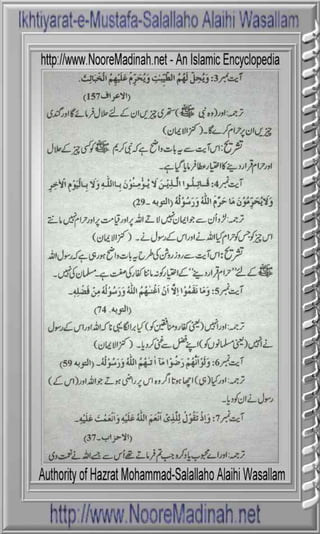 Ikhtiyarat-e-Mustafa-Salallaho Alaihi Wasallam
http://www.NooreMadinah.net - An Islamic Encyclopedia
آیت نمبر3: وَيُحِلُّ لَهُمُ الطَّيِّبٰتِ وَيُحَرِّمُ عَلَيْهِمُ الْخَبَائِثَ۔
(الاعراف157)
ترجمہ: اور (وہ نبی ﷺ) ستھری چیزیں ان کے لئے حلال فرمائے گا اور گندی
چیزیں ان پر حرام کرے گا۔ (کنزالایمان)
تشریح: اس آیت سے یہ بات واضح ہے کہ نبی کریم ﷺ کو کسی چیز کے حلال
اور حرام قرار دینے کا اختیار عطا فرمایا گیا ہے۔
آیت نمبر4: قَاتِلُوا الَّذِيْنَ لَا يُؤْمِنُوْنَ بِاللّٰهِ وَلَا بِالْيَوْمِ الْاٰخِرِ
وَلَا يُحَرِّمُوْنَ مَا حَرَّمَ اللّٰهُ وَرَسُوْلُهٗ (التوبہ ۔29)
ترجمہ: لڑو ان سے جو ایمان نہیں لاتے اللہ پر اور قیامت پر اور حرام نہیں مانتے
اس چیز کو جس کو حرام کیا اللہ نے اور اس کے رسول نے۔ (کنزالایمان)
تشریح: اس آیت سے روز روشن کی طرح یہ بات واضح ہو رہی ہے کہ رسول اللہ
ﷺ کے لئے "حرام قرار دینے" کے اختیار کو نہ ماننا کفار کی صفت ہے۔ مسلمان کی نہیں۔
آیت نمبر5: وَمَا نَقَمُوْا اِلَّا اَنْ اَغْنٰهُمُ اللّٰهُ وَرَسُوْلُهٗ مِنْ فَضْلِهٖ۔
(التوبہ ۔74)
ترجمہ: اور انہیں (یعنی کفار و منافقین کو) کیا برا لگا یہی نا کہ اللہ اور اس کے رسول
نے انہیں (یعنی مسلمانوں کو) اپنے فضل سے غنی کر دیا۔ (کنزالایمان)
آیت نمبر6: وَلَوْ اَنَّهُمْ رَضُوْا مَا اٰتٰهُمُ اللّٰهُ وَرَسُوْلُهٗ۔ (التوبہ59)
ترجمہ: اور کیا (ہی) اچھا ہوتا اگر وہ اس پر راضی ہوتے جو اللہ اور (اس کے)
رسول نے ان کو دیا۔
آیت نمبر7: وَاِذْ تَقُوْلُ لِلَّذِيْ اَنْعَمَ اللّٰهُ عَلَيْهِ وَاَنْعَمْتَ عَلَيْهِ۔
(الاحزاب۔37)
ترجمہ: اور اے محبوب یاد کرو جب تم فرماتے تھے اس سے جسے اللہ نے نعمت دی
Authority of Hazrat Mohammad-Salallaho Alaihi Wasallam
http://www.NooreMadinah.net